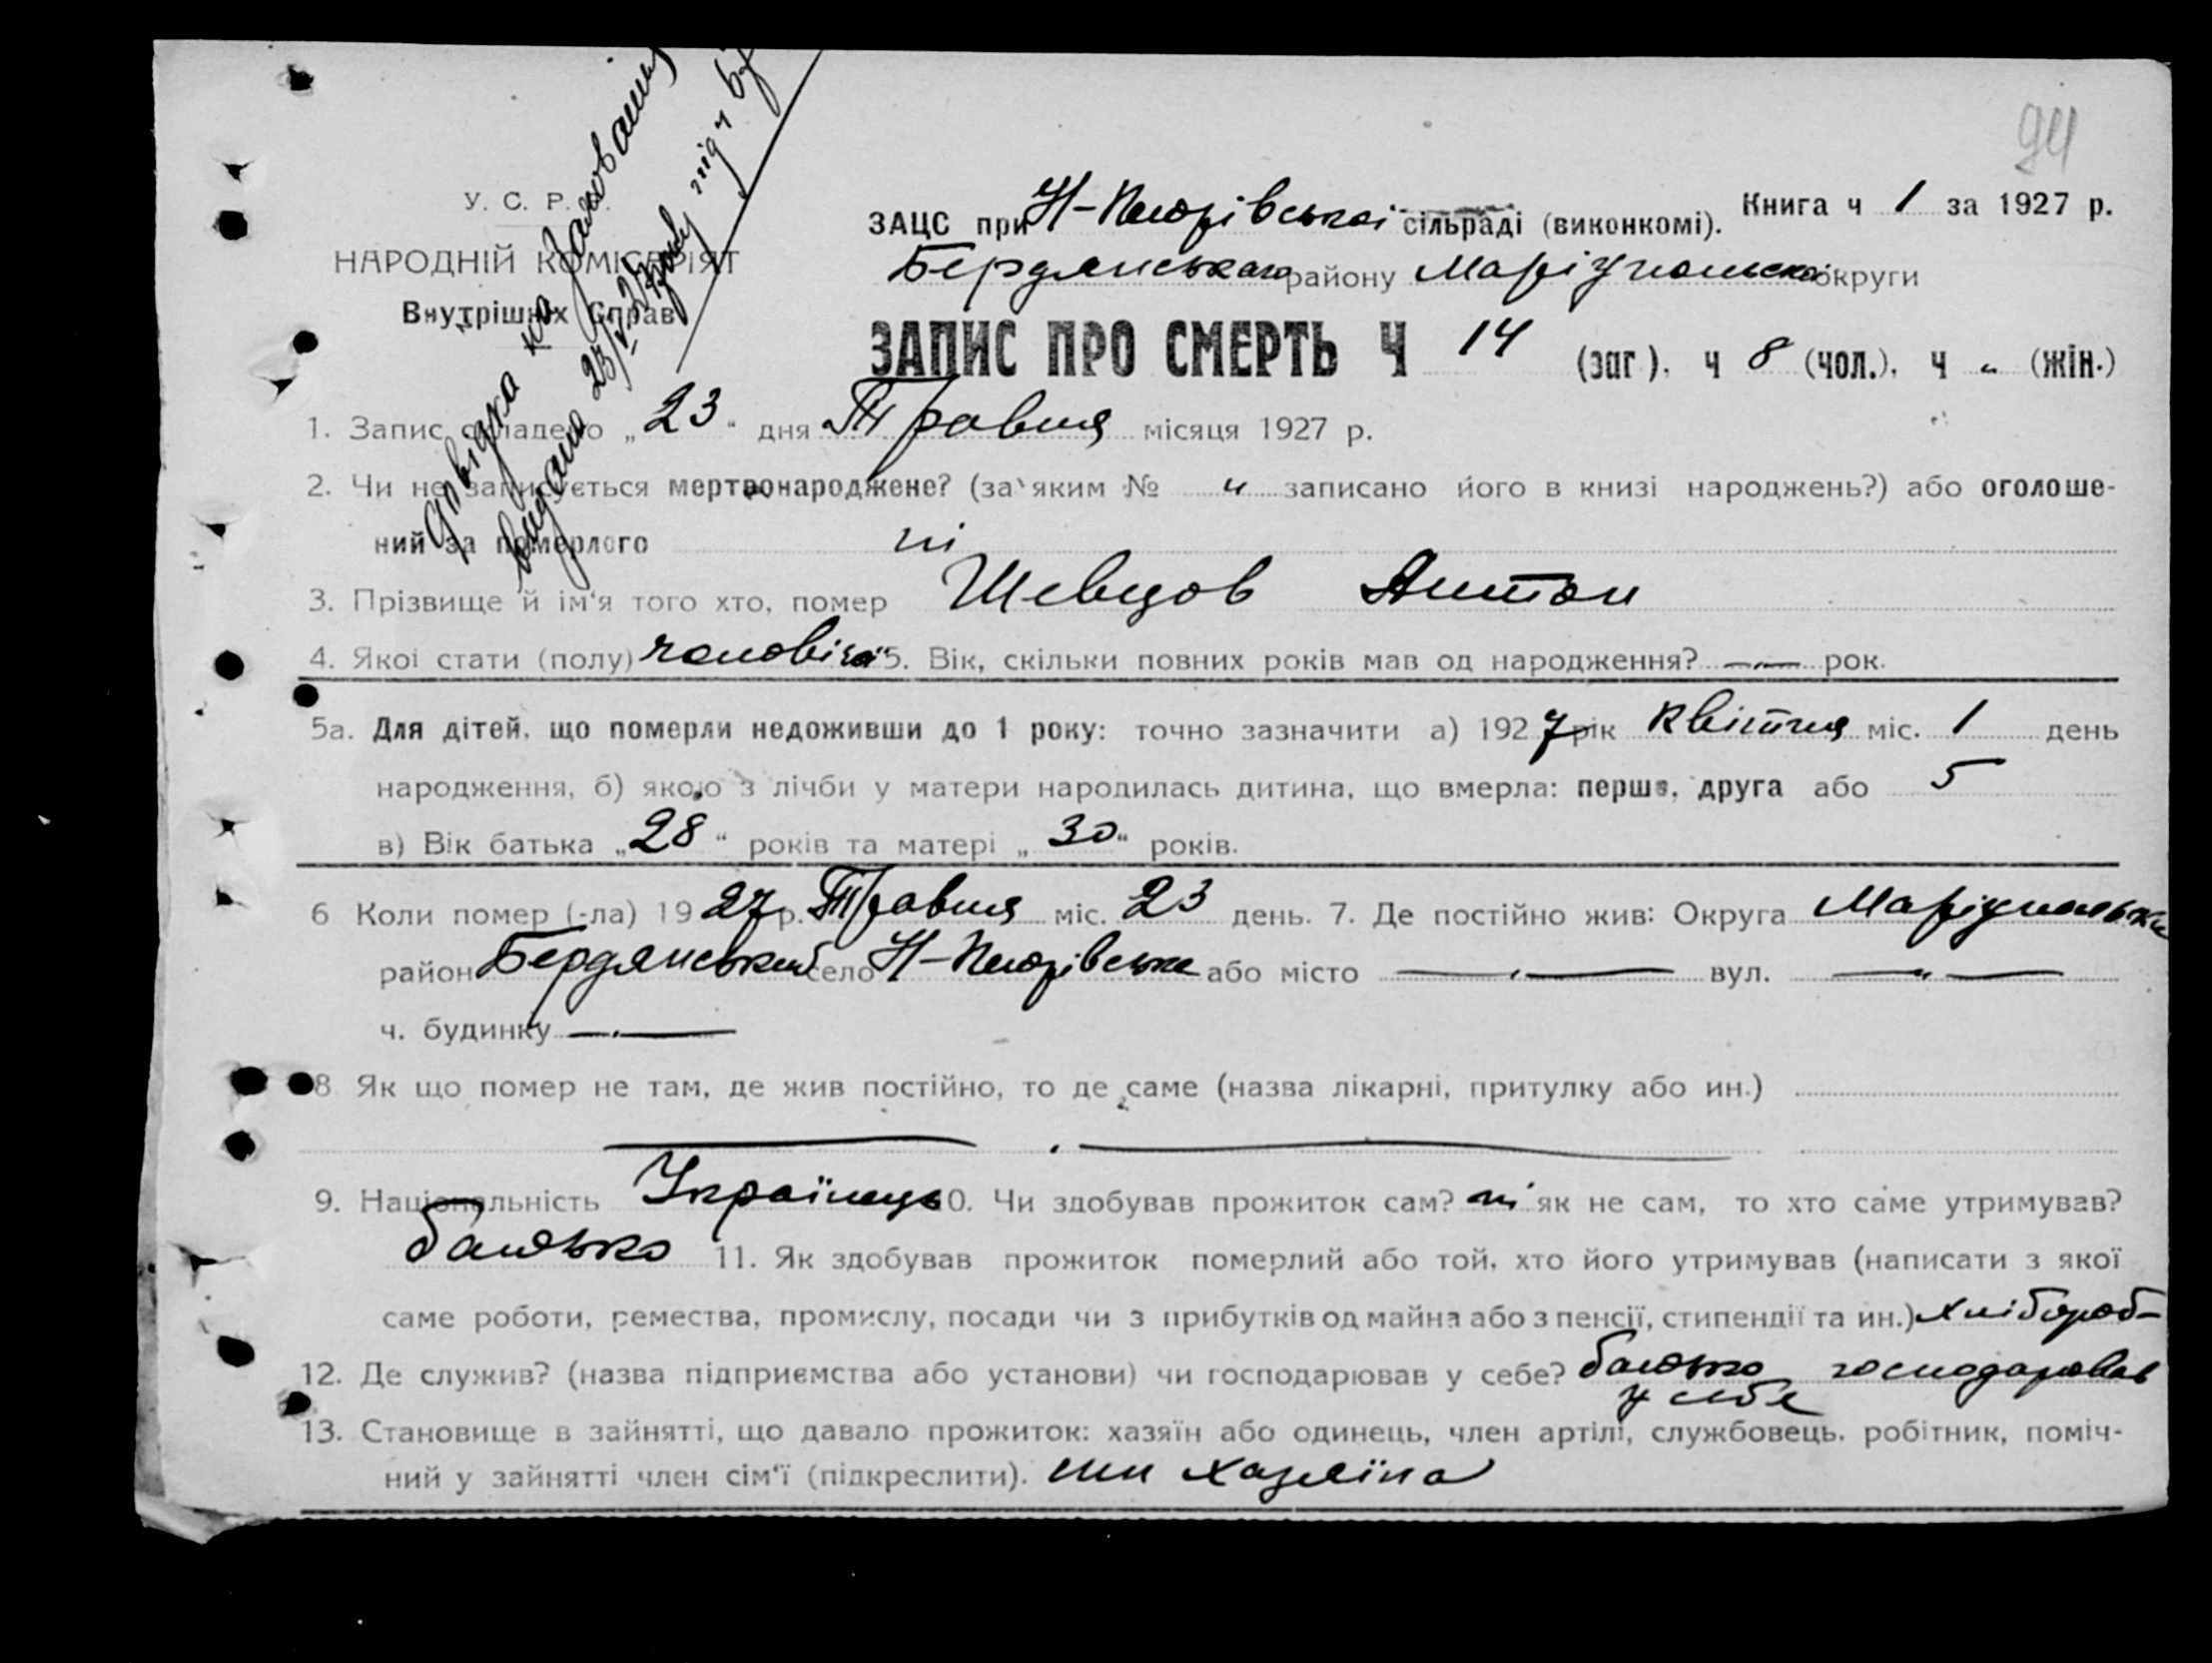 94
У. С. Р. Р.
НАРОДНІЙ КОМІСАРІЯТ
Внутрішніх Справ
на Заховання
видано 23/V-27 року під ч
ЗАЦС при Н- сільраді (виконкомі). Книга ч 1 за 1927 р.
Бердянського району Маріупольської округи
ЗАПИС ПРО СМЕРТЬ Ч 14 (заг). ч 8 (чол.). ч „ (жін.)
1. Запис складено „23“ дня Травня місяця 1927 р.
2. Чи не записується мертвонароджене? (за яким № „ записано його в книзі народжень?) або оголоше-
ний за померлого ні
3. Прізвище й ім'я того хто, помер Шевцов Антон
4. Якої стати (полу) чоловічої 5. Вік, скільки повних років мав од народження? —„— рок.
5а. Для дітей, що померли недоживши до 1 року: точно зазначити а) 1927 рік Квітня міс. 1 день
народження, б) якою з лічби у матери народилась дитина, що вмерла: перша, друга або 5
в) Вік батька „28“ років та матері „30“ років.
6 Коли помер (-ла) 1927 р. Травня міс. 23 день. 7. Де постійно жив: Округа Маріупольська
район Бердянський село Н- або місто —„— вул. —„—
ч. будинку —„—
8 Як що помер не там, де жив постійно, то де саме (назва лікарні, притулку або ин.)
—„—
9. Національність Українець 10. Чи здобував прожиток сам? ні як не сам, то хто саме утримував?
батько 11. Як здобував прожиток померлий або той, хто його утримував (написати з якої
саме роботи, ремества, промислу, посади чи з прибутків од майна або з пенсії, стипендії та ин.) хлібороб-
12. Де служив? (назва підприємства або установи) чи господарював у себе? батько господарював
у себе
13. Становище в зайнятті, що давало прожиток: хазяїн або одинець, член артілі, службовець, робітник, поміч-
ний у зайнятті член сім'ї (підкреслити). син хазяїна